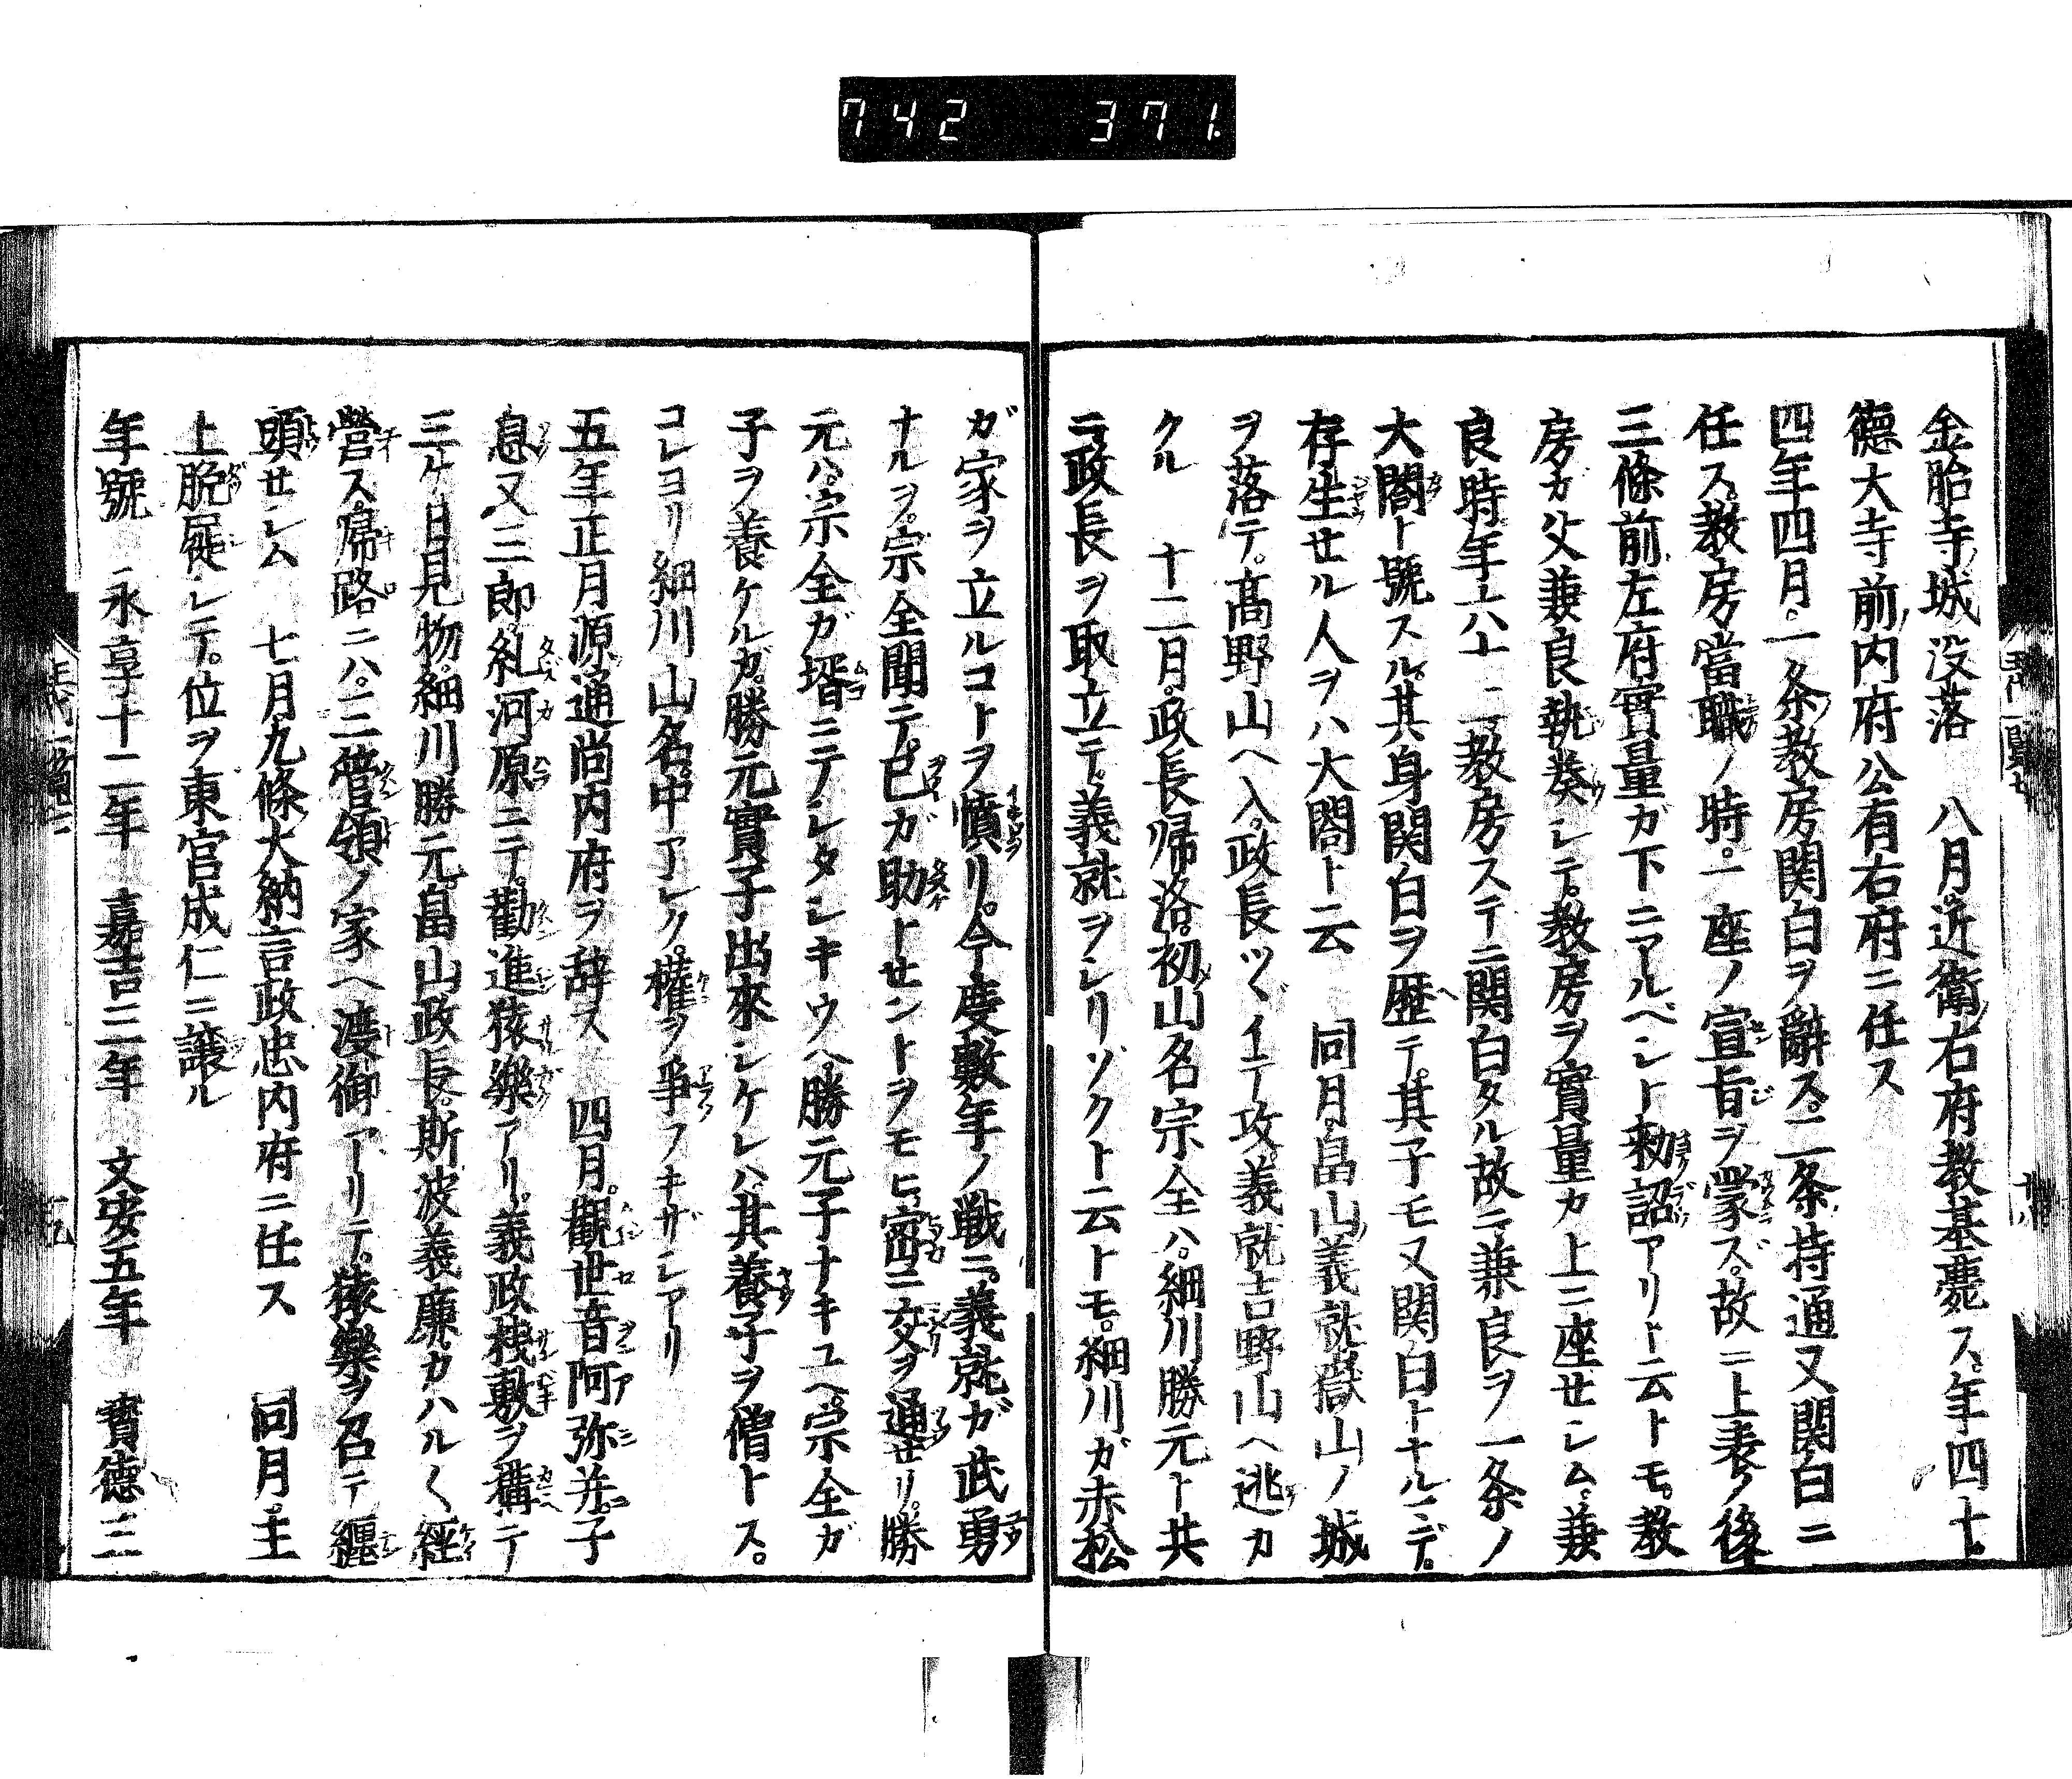 742 371.
金胎寺ノ城没落 八月。近衛ノ右府教基薨ス。年四十。
德大寺前ノ内府公有右府ニ任ス
四年四月。一条ノ教房関白ヲ辭ス。二条ノ持通又関白ニ
任ス。教房當職ノ時。一座ノ宣旨ヲ蒙ズ。故ニ上表ノ後
三條前左府實量ガ下ニアルベシト勅詔アリト云トモ。教
房ガ父兼良執奏シテ。教房ヲ實量カ上ニ座セシム。兼
良時年六十二。教房ステニ関白タル故ニ兼良ヲ一条ノ
大閤ト號スル。其身関白ヲ歴テ。其子モ又関白トナルニ。デ。
存生セル人ヲハ大閤ト云 同月。畠山ノ義就嶽山ノ城
ヲ落テ。髙野山ヘ入。政長ツヾイテ攻。義就吉野山ヘ逃カ
クル 十二月。政長帰洛。初メ山名宗全ハ。細川勝元ト共
ニ政長ヲ取立テ。義就ヲシリゾクト云トモ。細川ガ赤松
ガ家ヲ立ルコトヲ憤リ。今度數年ノ戦ニ。義就ガ武勇
ナルヲ。宗全聞テ。已ガ助トセントヲモヒ。密ニ交ヲ通セリ。勝
元ハ。宗全ガ壻ニテシタシキウヘ。勝元子ナキユヘ。宗全ガ
子ヲ養ケルガ。勝元實子出來シケレハ。其養子ヲ僧トス。
コレヨリ細川山名。中アシク。權ヲ爭フキザシアリ
五年正月源ノ通尚内府ヲ辞ス 四月。觀世音阿弥并ニ子
息又三郎。糺河原ニテ。勸進猿樂アリ。義政棧敷ヲ構テ
三ケ日見物。細川勝元。畠山政長。斯波義廉。カハル〱經
營ス。帰路ニハ。三管領ノ家ヘ渡御アリテ。猿樂ヲ召テ纏
頭セシム 七月九條大納言政忠内府ニ任ス 同月。主
上脱屣シテ。位ヲ東宮成仁ニ譲ル
年號 永享十二年 嘉吉三年 文安五年 寳德三